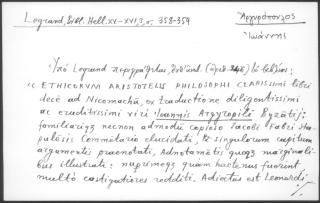 Legrand, Bibl. Hell. XV-XVI, 3, σ. 358-359
Ἀργυρόπουλος
Ἰωάννης
Ὑπὸ Legrand περιγράφεται, ἐνθ' ἀνωτ. τὸ βιβλίον:
« ETHICORUM ARISTOTELIS PHILOSOPHI CLARISSIMI libri
decē ad Nicomachū, ex traductione diligentissimi
ac eruditissimi viri Ioannis Argyropili Byzātij:
familiariq; necnon admodū copioso Iacobi Fabri Sta-
pulēsis Commētario elucidati, & singulorum capitum
argumentis praenotati, Adnotamētis quoq; marginali-
bus illustrati: nuprimeq; quam hactenus fuerant
multo castigatiores redditi. Adiectus est Leonardi